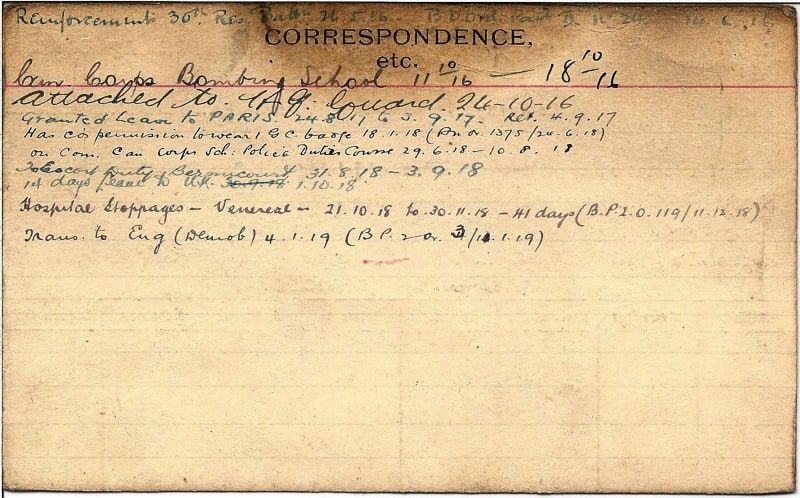 Reinforcement 36th Res. Batt. 26.5.16 - B D Ord. Part II N. 14.6.16
CORRESPONDENCE,
etc.
Can Corps Bombing School 11 10/16 — 18 10/16
Attached to. Guard. 24-10-16
Granted Leave to PARIS. 24.8.17 to 3.9.17. Ret. 4.9.17
Has co's permission to wear 1 G C badge 18.1.18 (1375/24.6.18)
on Com. Can Corps Sch: Police Duties Course 29.6.18 - 10.8.18
Duty Bermicourt 31.8.18 - 3.9.18
14 days leave to U.K. 30.9.18 1.10.18
Hospital Stoppages - Venereal - 21.10.18 to 30.11.18 - 41 days (B.P.2.O.119/11.12.18)
Trans. to Eng (Demob) 4.1.19 (B.P. 2 or. 3/11.1.19)